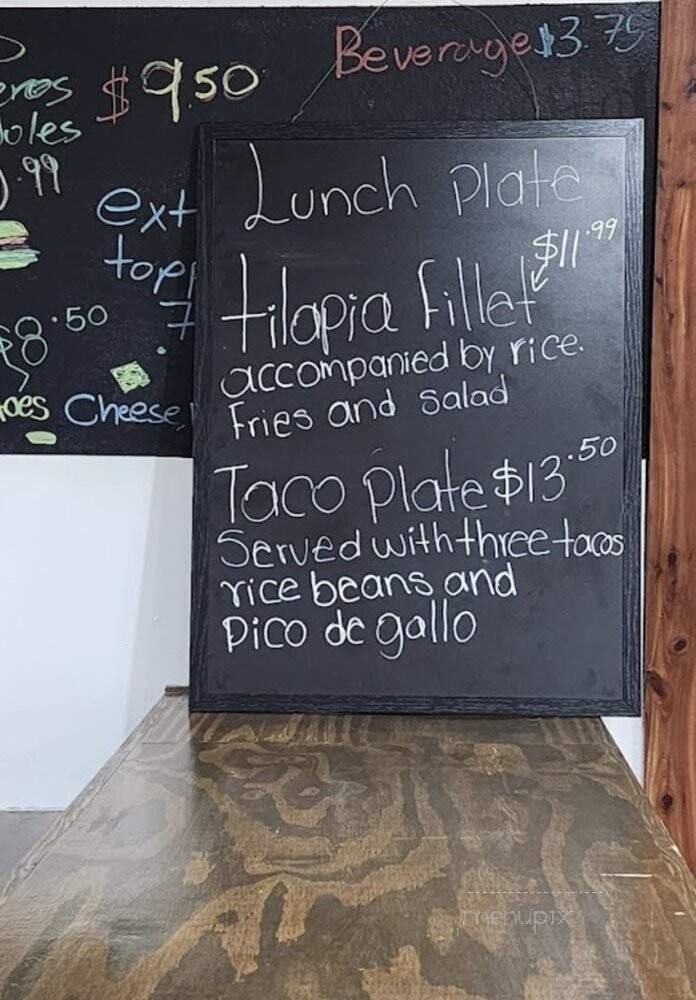 $9.50
Beverage $3.75
.99
$8.50
Cheese,
Lunch Plate
$11.99
tilapia fillet
accompanied by rice.
Fries and salad
Taco Plate $13.50
Served with three tacos
rice beans and
pico de gallo
menupix